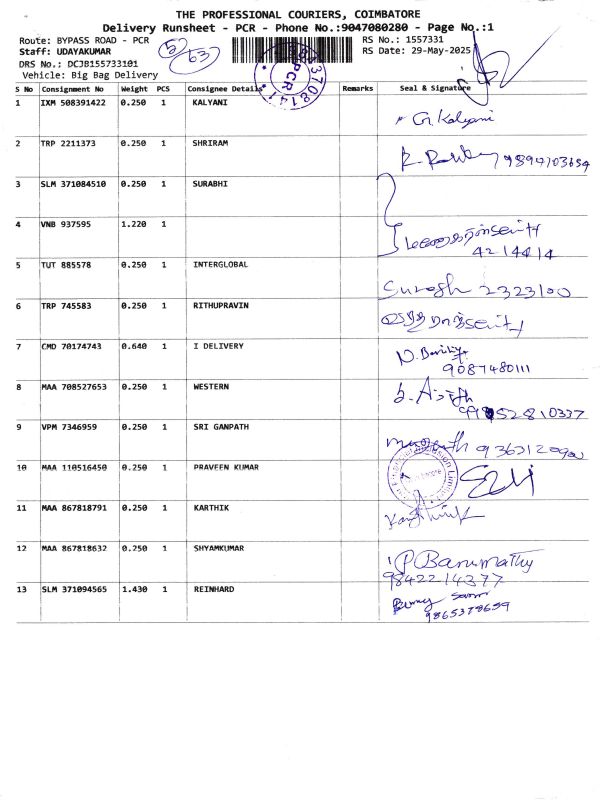 THE PROFESSIONAL COURIERS, COIMBATORE
Delivery Runsheet - PCR - Phone No.:9047080280 - Page No.:1
Route: BYPASS ROAD - PCR
Staff: UDAYAKUMAR
DRS No.: DCJB155733101
Vehicle: Big Bag Delivery
63
PCR
RS No.: 1557331
RS Date: 29-May-2025
S No Consignment No Weight PCS Consignee Details Remarks Seal & Signature
1 IXM 508391422 0.250 1 KALYANI G. Kalyani
2 TRP 2211373 0.250 1 SHRIRAM 9894703654
3 SLM 371084510 0.250 1 SURABHI
4 VNB 937595 1.220 1
4214414
5 TUT 885578 0.250 1 INTERGLOBAL Suresh 2323100
6 TRP 745583 0.250 1 RITHUPRAVIN
7 CMD 70174743 0.640 1 I DELIVERY
9087480111
8 MAA 708527653 0.250 1 WESTERN
9 VPM 7346959 0.250 1 SRI GANPATH
10 MAA 110516450 0.250 1 PRAVEEN KUMAR
11 MAA 867818791 0.250 1 KARTHIK
12 MAA 867818632 0.250 1 SHYAMKUMAR P Banumathy
9842214377
13 SLM 371094565 1.430 1 REINHARD
9865378659